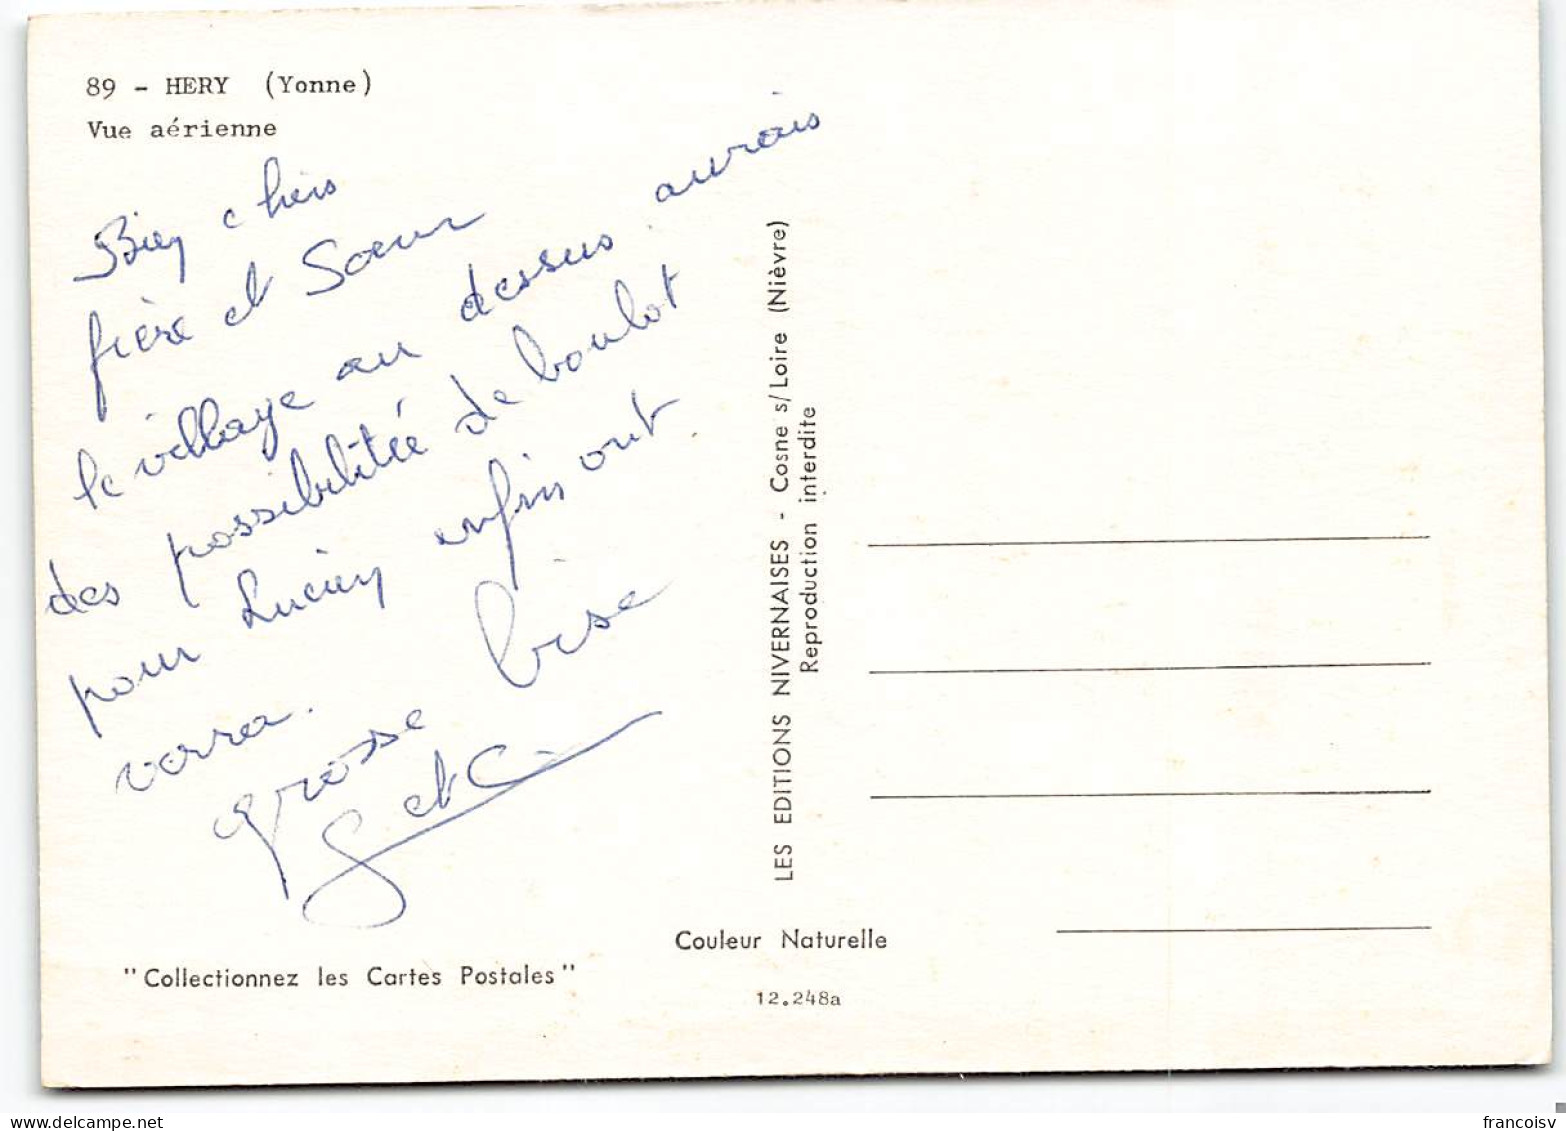 89 - HERY (Yonne)
Vue aérienne
Bien chers
frère et Sœur
le village au dessus aurais
des possibilitée de boulot
pour Lucien enfin ont
verra.
grosse bise
G et C
LES EDITIONS NIVERNAISES - Cosne s/Loire (Nièvre)
Reproduction interdite
Couleur Naturelle
"Collectionnez les Cartes Postales"
12.248a
delcampe.net
francoisv